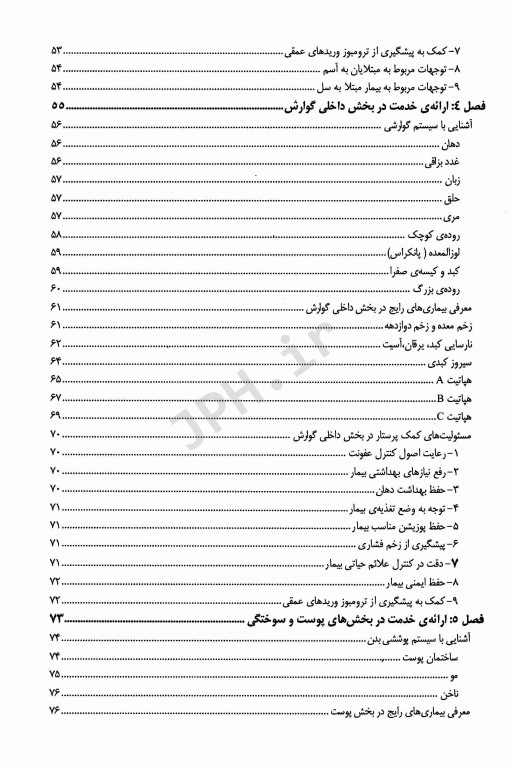 ۷- کمک به پیشگیری از ترومبوز وریدهای عمقی ۵۳
۸- توجهات مربوط به مبتلایان به آسم ۵۴
۹- توجهات مربوط به بیمار مبتلا به سل ۵۴
فصل ٤: ارائه‌ی خدمت در بخش داخلی گوارش ۵۵
آشنایی با سیستم گوارشی ۵۶
دهان ۵۶
غدد بزاقی ۵۶
زبان ۵۷
حلق ۵۷
مری ۵۷
روده‌ی کوچک ۵۸
لوزالمعده ( پانکراس) ۵۹
کبد و کیسه‌ی صفرا ۵۹
روده‌ی بزرگ ۶۰
معرفی بیماری‌های رایج در بخش داخلی گوارش ۶۱
زخم معده و زخم دوازدهه ۶۱
نارسایی کبد، یرقان،آسیت ۶۲
سیروز کبدی ۶۴
هپاتیت A ۶۵
هپاتیت B ۶۷
هپاتیت C ۶۹
مسئولیت‌های کمک پرستار در بخش داخلی گوارش ۷۰
۱- رعایت اصول کنترل عفونت ۷۰
۲- رفع نیازهای بهداشتی بیمار ۷۰
۳- حفظ بهداشت دهان ۷۰
۴- توجه به وضع تغذیه‌ی بیمار ۷۱
۵- حفظ پوزیشن مناسب بیمار ۷۱
۶- پیشگیری از زخم فشاری ۷۱
۷- دقت در کنترل علائم حیاتی بیمار ۷۱
۸- حفظ ایمنی بیمار ۷۲
۹- کمک به پیشگیری از ترومبوز وریدهای عمقی ۷۲
فصل ٥: ارائه‌ی خدمت در بخش‌های پوست و سوختگی ۷۳
آشنایی با سیستم پوششی بدن ۷۴
ساختمان پوست ۷۴
مو ۷۵
ناخن ۷۶
معرفی بیماری‌های رایج در بخش پوست ۷۶
JPH.ir